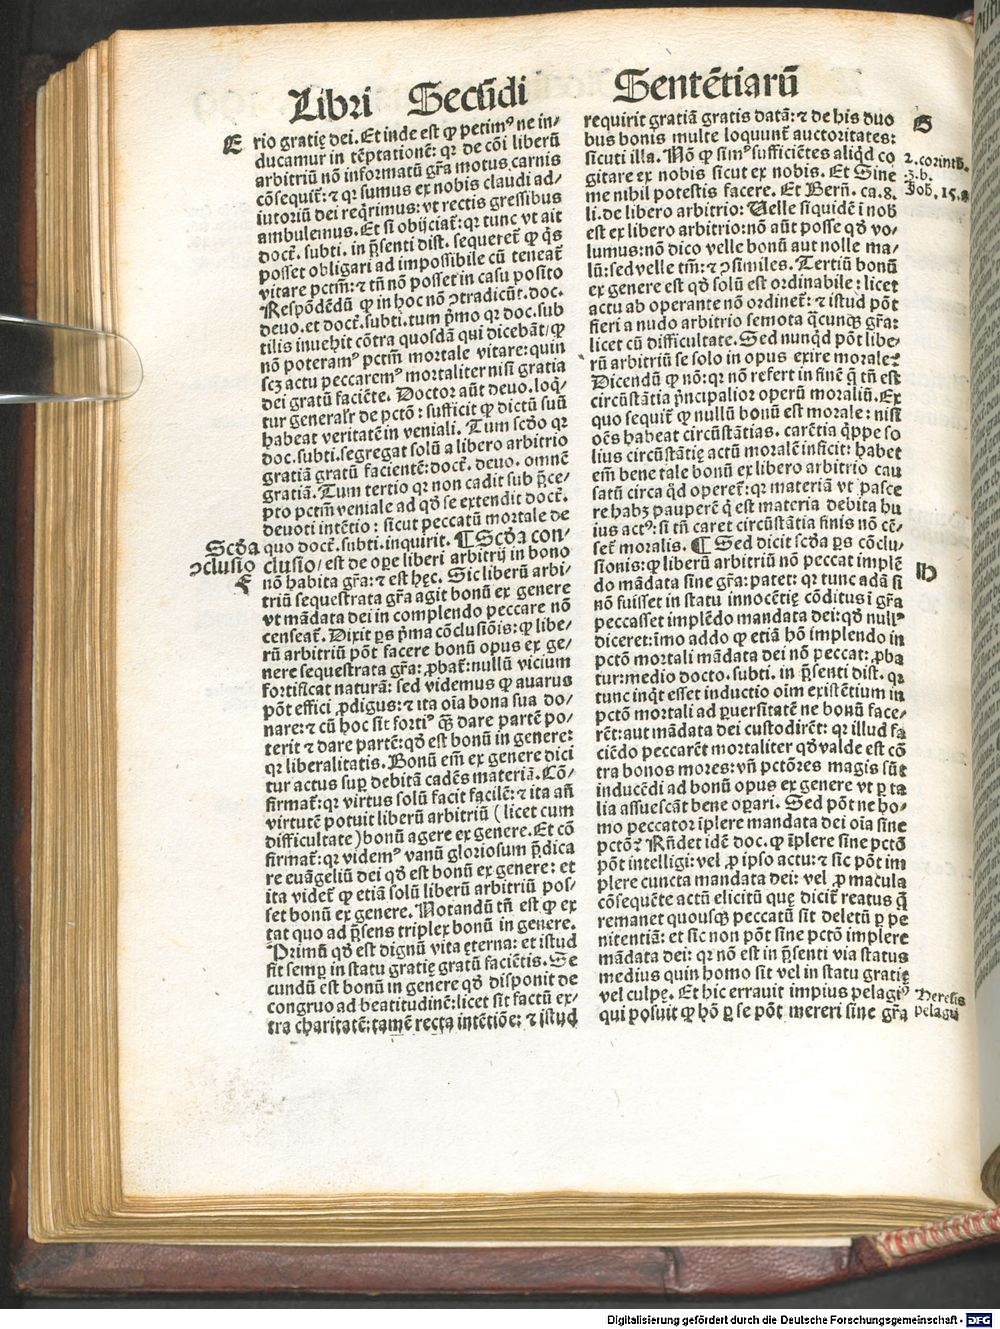 Libri Secūdi Sentētiarū
E
rio gratię dei. Et inde est ꝙ petimꝰ ne in⸗
ducamur in tēptationē: qr de cōi liberū
arbitriū nō informatū gr̄a motus carnis
cōsequit̄: ⁊ qr sumus ex nobis claudi ad⸗
iutoriū dei reqrimus: vt rectis gressibus
ambulemus. Et si obijciat̄: qr tunc vt ait
doct̄. subti. in p̄senti dist. sequeret̄ ꝙ q̇s
posset obligari ad impossibile cū teneat̄
vitare pctm̄: ⁊ tn̄ nō posset in casu posito
Respōdēdū ꝙ in hoc nō ꝯtradicūt. doc.
deuo. et doct̄. subti. tum p̄mo qr doc. sub
tilis inuehit cōtra quosdā qui dicebāt/ ꝙ
nō poteramꝰ pctm̄ mortale vitare: quin
scꝫ actu peccaremꝰ mortaliter nisi gratia
dei gratū faciēte. Doctor aūt deuo. loq̄⸗
tur generalr̄ de pctō: sufficit ꝙ dictū suū
habeat veritatē in veniali. Tum scd̄o qr
doc. subti. segregat solū a libero arbitrio
gratiā gratū facientē: doct̄. deuo. omnē
gratiā. Tum tertio qr non cadit sub p̄ce⸗
pto pctm̄ veniale ad qd̄ se extendit doct̄.
deuoti intētio: sicut peccatū mortale de
quo doct̄. subti. inquirit. ¶ Scd̄a con⸗
Scd̄a
ꝯclusio
F
clusio/ est de oꝑe liberi arbitrij in bono
nō habita gr̄a: ⁊ est hęc. Sic liberū arbi⸗
triū sequestrata gr̄a agit bonū ex genere
vt mādata dei in complendo peccare nō
censeat̄. Dixit ꝑs p̄ma cōclusiōis: ꝙ libe⸗
rū arbitriū pōt facere bonū opus ex ge⸗
nere sequestrata gr̄a: ꝓbat̄: nullū vicium
fortificat naturā: sed videmus ꝙ auarus
pōt effici ꝓdigus: ⁊ ita oīa bona sua do⸗
nare: ⁊ cū hoc sit fortiꝰ q̄ꝫ dare partē po⸗
terit ⁊ dare partē: qd̄ est bonū in genere:
qr liberalitatis. Bonū em̄ ex genere dici
tur actus suꝑ debitā cadēs materiā. Cō⸗
firmat̄: qr virtus solū facit facilē: ⁊ ita añ
virtutē potuit liberū arbitriū (licet cum
difficultate) bonū agere ex genere. Et cō
firmat̄: qr videmꝰ vanū gloriosum p̄dica
re euāgeliū dei qd̄ est bonū ex genere: et
ita videt̄ ꝙ etiā solū liberū arbitriū pos⸗
set bonū ex genere. Notandū tn̄ est ꝙ ex
tat quo ad p̄sens triplex bonū in genere.
Primū qd̄ est dignū vita ęterna: et istud
fit semꝑ in statu gratię gratū faciētis. Se
cundū est bonū in genere qd̄ disponit de
congruo ad beatitudinē: licet sit factū ex⸗
tra charitatē: tamē recta intētiōe: ⁊ istud
requirit gratiā gratis datā: ⁊ de his duo
G
bus bonis multe loquunt̄ auctoritates:
sicuti illa. Nō ꝙ simꝰ sufficiētes aliqd co
gitare ex nobis sicut ex nobis. Et Sine
me nihil potestis facere. Et Bern̄. ca. 8.
2. corinth.
3. b.
Joh. 15. a
li. de libero arbitrio: Uelle siquidē ī nob̄
est ex libero arbitrio: nō aūt posse qd̄ vo⸗
lumus: nō dico velle bonū aut nolle ma⸗
lū: sed velle tm̄: ⁊ ꝯsimiles. Tertiū bonū
ex genere est qd̄ solū est ordinabile: licet
actu ab operante nō ordinet̄: ⁊ istud pōt
fieri a nudo arbitrio semota q̄cunqꝫ gr̄a:
licet cū difficultate. Sed nunqd̄ pōt libe⸗
rū arbitriū se solo in opus exire morale?
Dicendū ꝙ nō: qr nō refert in finē q̄ tn̄ est
circūstātia p̄ncipalior operū moraliū. Ex
quo sequit̄ ꝙ nullū bonū est morale: nisi
oēs habeat circūstātias. carētia q̄ppe so
lius circūstātię actū moralē inficit: habet
em̄ bene tale bonū ex libero arbitrio cau
satū circa qd̄ operet̄: qr materiā vt pasce
re habꝫ pauperē q̇ est materia debita hu
ius actꝰ: si tn̄ caret circūstātia finis nō cē⸗
set̄ moralis. ¶ Sed dicit scd̄a ꝑs cōclu⸗
H
sionis: ꝙ liberū arbitriū nō peccat implē
do mādata sine gr̄a: patet: qr tunc adā si
nō fuisset in statu innocētię cōditus ī gr̄a
peccasset implēdo mandata dei: qd̄ nullꝰ
diceret: īmo addo ꝙ etiā hō implendo in
pctō mortali mādata dei nō peccat: ꝓba
tur: medio docto. subti. in p̄senti dist. qr
tunc inqt esset inductio oīm existētium in
pctō mortali ad ꝑuersitatē ne bonū face⸗
rēt: aut mādata dei custodirēt: qr illud fa
ciēdo peccarēt mortaliter qd̄ valde est cō
tra bonos mores: vn̄ pctōres magis sūt
inducēdi ad bonū opus ex genere vt ꝑ ta
lia assuescāt bene oꝑari. Sed pōt ne ho⸗
mo peccator īplere mandata dei oīa sine
pctō? Rn̄det idē doc. ꝙ īplere sine pctō
pōt intelligi: vel ꝓ ipso actu: ⁊ sic pōt im
plere cuncta mandata dei: vel ꝓ macula
cōsequēte actū elicitū quę dicit̄ reatus q̄
remanet quousqꝫ peccatū sit deletū ꝑ pe
nitentiā: et sic non pōt sine pctō implere
mādata dei: qr nō est in p̄senti via status
medius quin homo sit vel in statu gratię
vel culpę. Et hic errauit impius pelagiꝰ
qui posuit ꝙ hō ꝑ se pōt mereri sine gr̄a
Heresis
pelagii
Digitalisierung gefördert durch die Deutsche Forschungsgemeinschaft - DFG